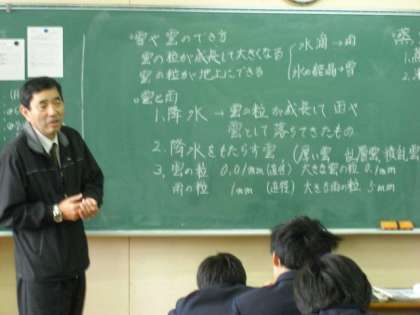 ○雲や雲のでき方
雲の粒が成長して大きくなる
雲の粒が地上にできる
水滴→雨
氷の結晶→雪
○雲と雨
1.降水 → 雲の粒が成長して雨や
雪として落ちてきたもの
2.降水をもたらす雲 (厚い雲 乱層雲 積乱雲
3.雲の粒 0.01mm(直径) 大きな雲の粒 0.1mm
雨の粒 1mm (直径) 大きな雨の粒 5mm
蒸
1.
2.